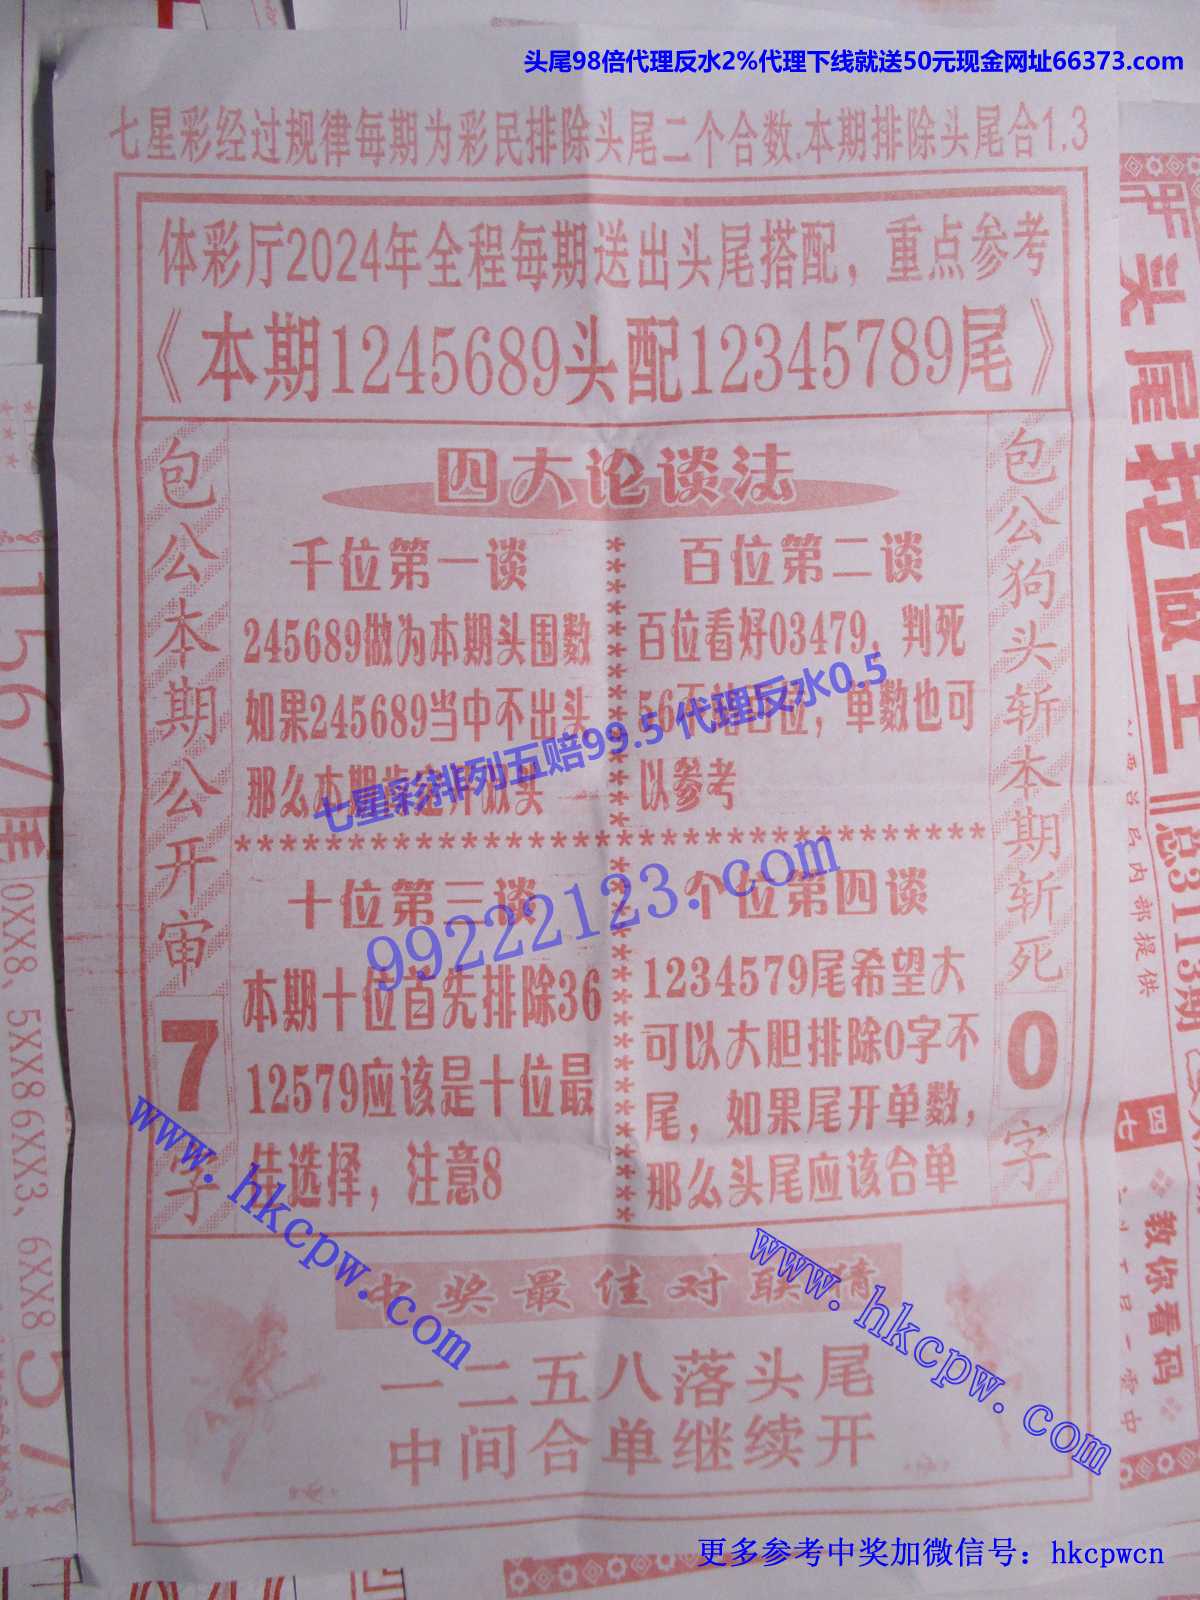 头尾98倍代理反水2%代理下线就送50元现金网址66373.com
七星彩经过规律每期为彩民排除头尾二个合数.本期排除头尾合1.3
体彩厅2024年全程每期送出头尾搭配，重点参考
《本期1245689头配12345789尾》
包公本期公开审
7
字
四大论谈法
千位第一谈
245689做为本期头围数
如果245689当中不出头
那么本期
百位第二谈
百位看好03479，判死
56
位，单数也可
以参考
七星彩排列五赔99.5 代理反水0.5
********************************
99222123.com
十位第三谈
本期十位首先排除36
12579应该是十位最
佳选择，注意8
个位第四谈
1234579尾希望大
可以大胆排除0字不
尾，如果尾开单数，
那么头尾应该合单
包公狗头斩本期斩死
0
字
www.hkcpw.com
www.hkcpw.com
中奖最佳对联猜
一二五八落头尾
中间合单继续开
更多参考中奖加微信号：hkcpwcn
1567尾
0XX8、5XX8
6XX3、6XX8
头尾
总3113期
内部提供
四七
教你看码